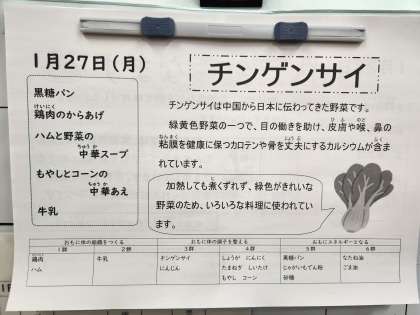 1月27日(月)
チンゲンサイ
黒糖パン
鶏肉のからあげ
ハムと野菜の
中華スープ
もやしとコーンの
中華あえ
牛乳
チンゲンサイは中国から日本に伝わってきた野菜です。
緑黄色野菜の一つで、目の働きを助け、皮膚や喉、鼻の
粘膜を健康に保つカロテンや骨を丈夫にするカルシウムが含ま
れています。
加熱しても煮くずれず、緑色がきれいな
野菜のため、いろいろな料理に使われてい
ます。
おもに体の組織をつくる おもに体の調子を整える おもにエネルギーとなる
1群 2群 3群 4群 5群 6群
鶏肉 牛乳 チンゲンサイ しょうが にんにく 黒糖パン なたね油
ハム にんじん たまねぎ しいたけ じゃがいもでん粉 ごま油
もやし コーン 砂糖